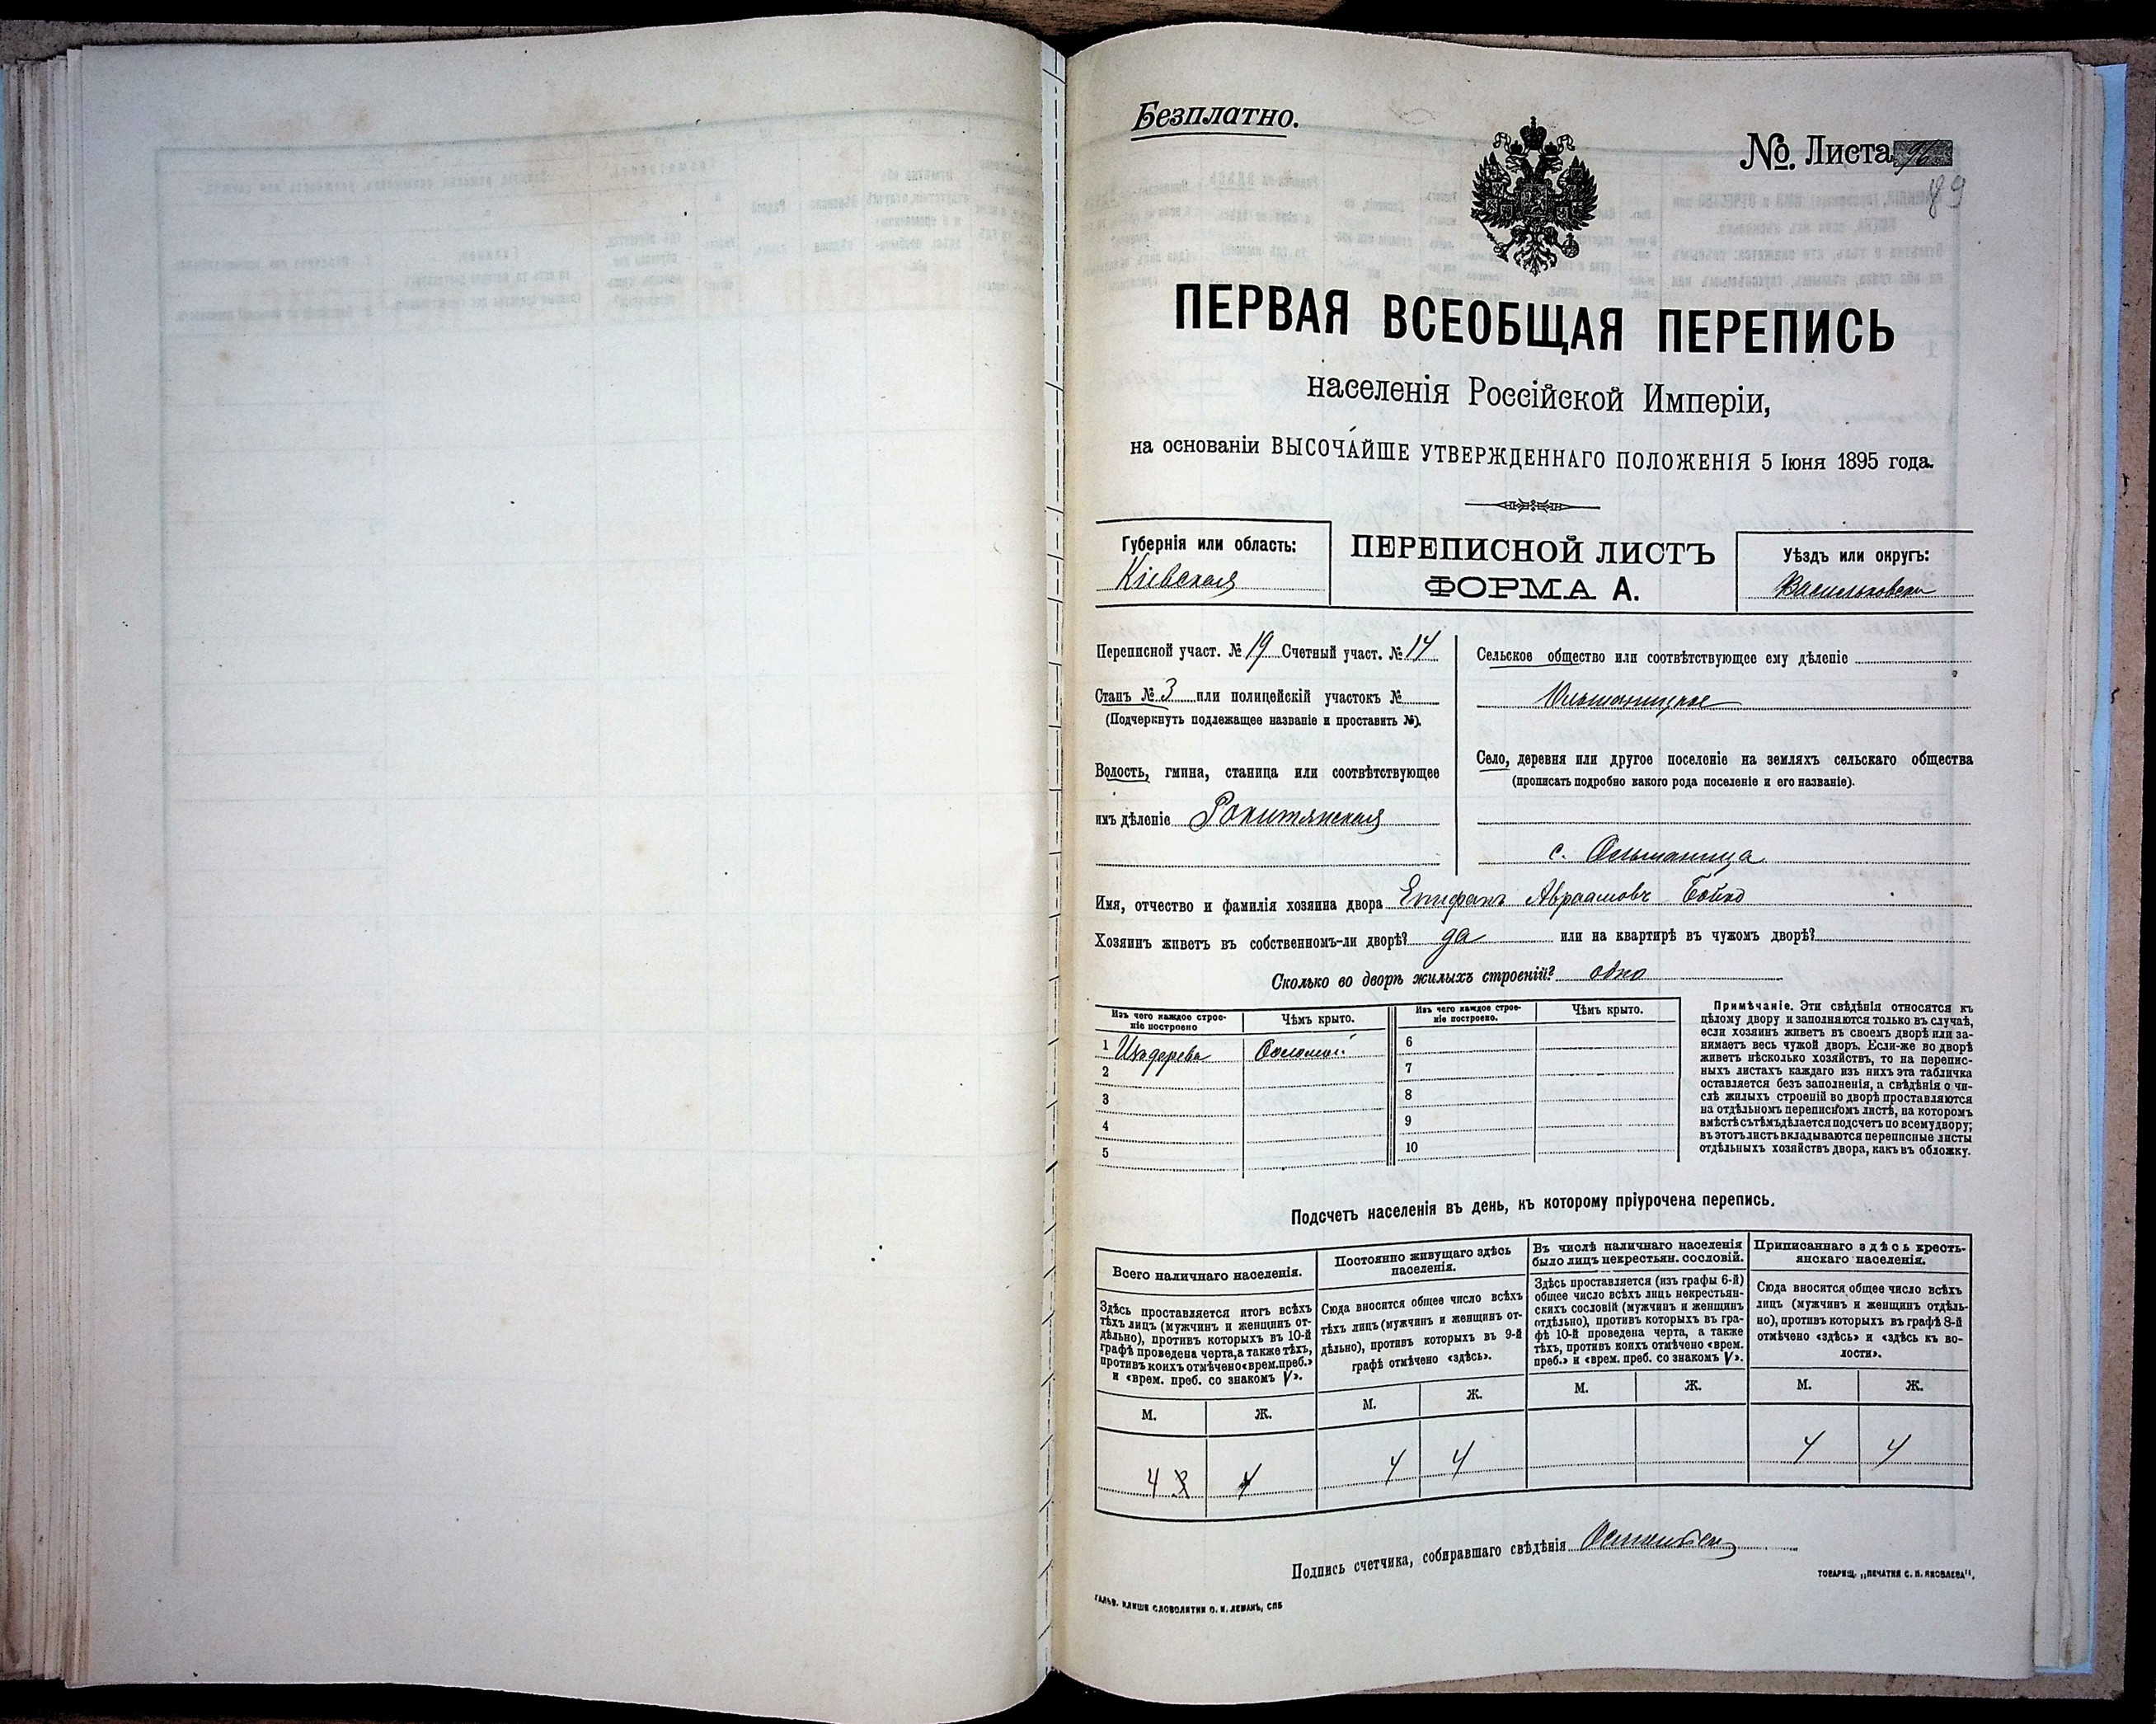 Безплатно.
№ Листа 96
89
ПЕРВАЯ ВСЕОБЩАЯ ПЕРЕПИСЬ
населенія Россійской Имперіи,
на основаніи ВЫСОЧАЙШЕ УТВЕРЖДЕННАГО ПОЛОЖЕНІЯ 5 Іюня 1895 года.
Губернія или область:
Кіевская
ПЕРЕПИСНОЙ ЛИСТЪ
ФОРМА А.
Уѣздъ или округъ:
Васильковскій
Переписной участ. № 19 Счетный участ. № 14
Станъ № 3 или полицейскій участокъ №
(Подчеркнуть подлежащее названіе и проставить №).
Волость, гмина, станица или соотвѣтствующее
имъ дѣленіе Рокитянская
Сельское общество или соотвѣтствующее ему дѣленіе
Ольшаницкое
Село, деревня или другое поселеніе на земляхъ сельскаго общества
(прописать подробно какого рода поселеніе и его названіе).
с. Ольшаница
Имя, отчество и фамилія хозяина двора Епифанъ Авраамовъ Бойко
Хозяинъ живетъ въ собственномъ-ли дворѣ? да или на квартирѣ въ чужомъ дворѣ?
Сколько во дворѣ жилыхъ строеній? одно
Изъ чего каждое строе-
ніе построено
Чѣмъ крыто.
Изъ чего каждое строе-
ніе построено.
Чѣмъ крыто.
1 Изъ дерева Соломой
2
3
4
5
6
7
8
9
10
Примѣчаніе. Эти свѣдѣнія относятся къ
цѣлому двору и заполняются только въ случаѣ,
если хозяинъ живетъ въ своемъ дворѣ или за-
нимаетъ весь чужой дворъ. Если-же во дворѣ
живетъ нѣсколько хозяйствъ, то на перепис-
ныхъ листахъ каждаго изъ нихъ эта табличка
оставляется безъ заполненія, а свѣдѣнія о чи-
слѣ жилыхъ строеній во дворѣ проставляются
на отдѣльномъ переписномъ листѣ, на которомъ
вмѣстѣ съ тѣмъ дѣлается подсчетъ по всему двору;
въ этотъ листъ вкладываются переписные листы
отдѣльныхъ хозяйствъ двора, какъ въ обложку.
Подсчетъ населенія въ день, къ которому пріурочена перепись.
Всего наличнаго населенія.
Здѣсь проставляется итогъ всѣхъ
тѣхъ лицъ (мужчинъ и женщинъ от-
дѣльно), противъ которыхъ въ 10-й
графѣ проведена черта, а также тѣхъ,
противъ коихъ отмѣчено «врем. преб.»
и «врем. преб. со знакомъ V».
Постоянно живущаго здѣсь
населенія.
Сюда вносится общее число всѣхъ
тѣхъ лицъ (мужчинъ и женщинъ от-
дѣльно), противъ которыхъ въ 9-й
графѣ отмѣчено «здѣсь».
Въ числѣ наличнаго населенія
было лицъ некрестьян. сословій.
Здѣсь проставляется (изъ графы 6-й)
общее число всѣхъ лицъ некрестьян-
скихъ сословій (мужчинъ и женщинъ
отдѣльно), противъ которыхъ въ гра-
фѣ 10-й проведена черта, а также
тѣхъ, противъ коихъ отмѣчено «врем.
преб.» и «врем. преб. со знакомъ V».
Приписаннаго здѣсь кресть-
янскаго населенія.
Сюда вносится общее число всѣхъ
лицъ (мужчинъ и женщинъ отдѣль-
но), противъ которыхъ въ графѣ 8-й
отмѣчено «здѣсь» и «здѣсь къ во-
лости».
М. Ж. М. Ж. М. Ж. М. Ж.
4 3 4 4 4 4 4
Подпись счетчика, собиравшаго свѣдѣнія
ГАЛЬВ. КЛИШЕ СЛОВОЛИТНИ О. И. ЛЕМАНЪ, СПБ
ТОВАРИЩ. „ПЕЧАТНЯ С. П. ЯКОВЛЕВА“.